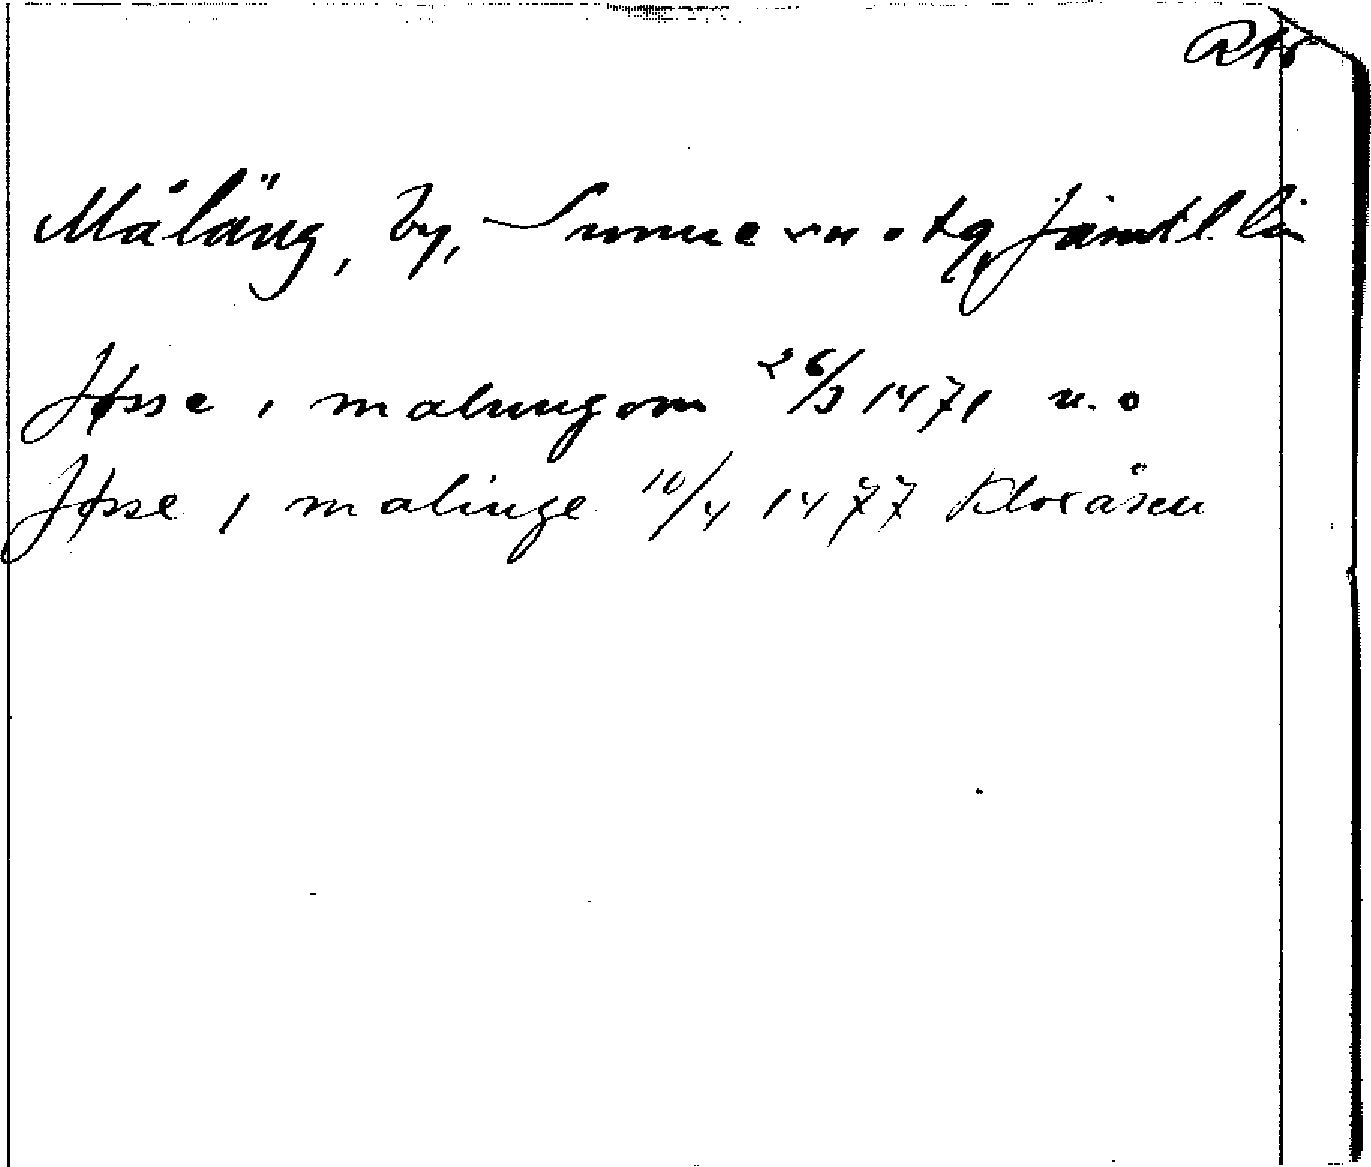 Måläng, by, Sunne sn o tg, Jämtl. län
Jøsse i malungom 26/3 1471 n. o
Jøsse i malinge 10/4 1477 Kloxåsen